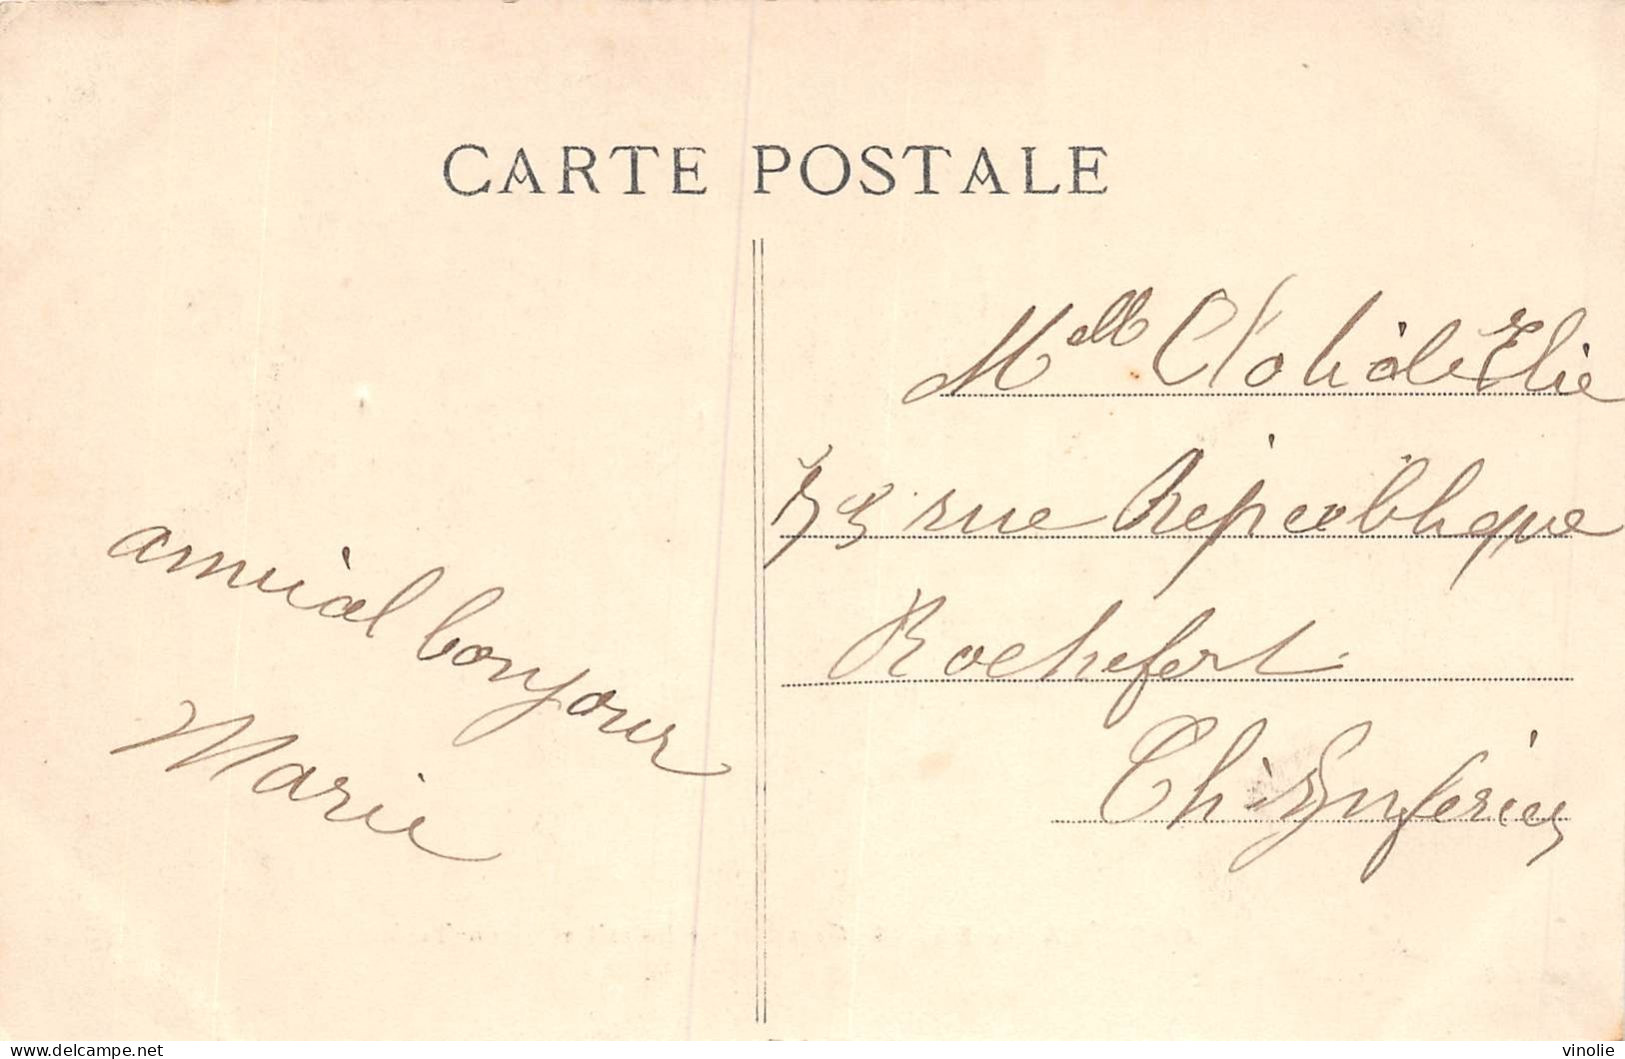 CARTE POSTALE
amical bonjour
Marie
Melle Clotilde Elie
73 rue République
Rochefort
Ch Inferieu
delcampe.net
vinolie